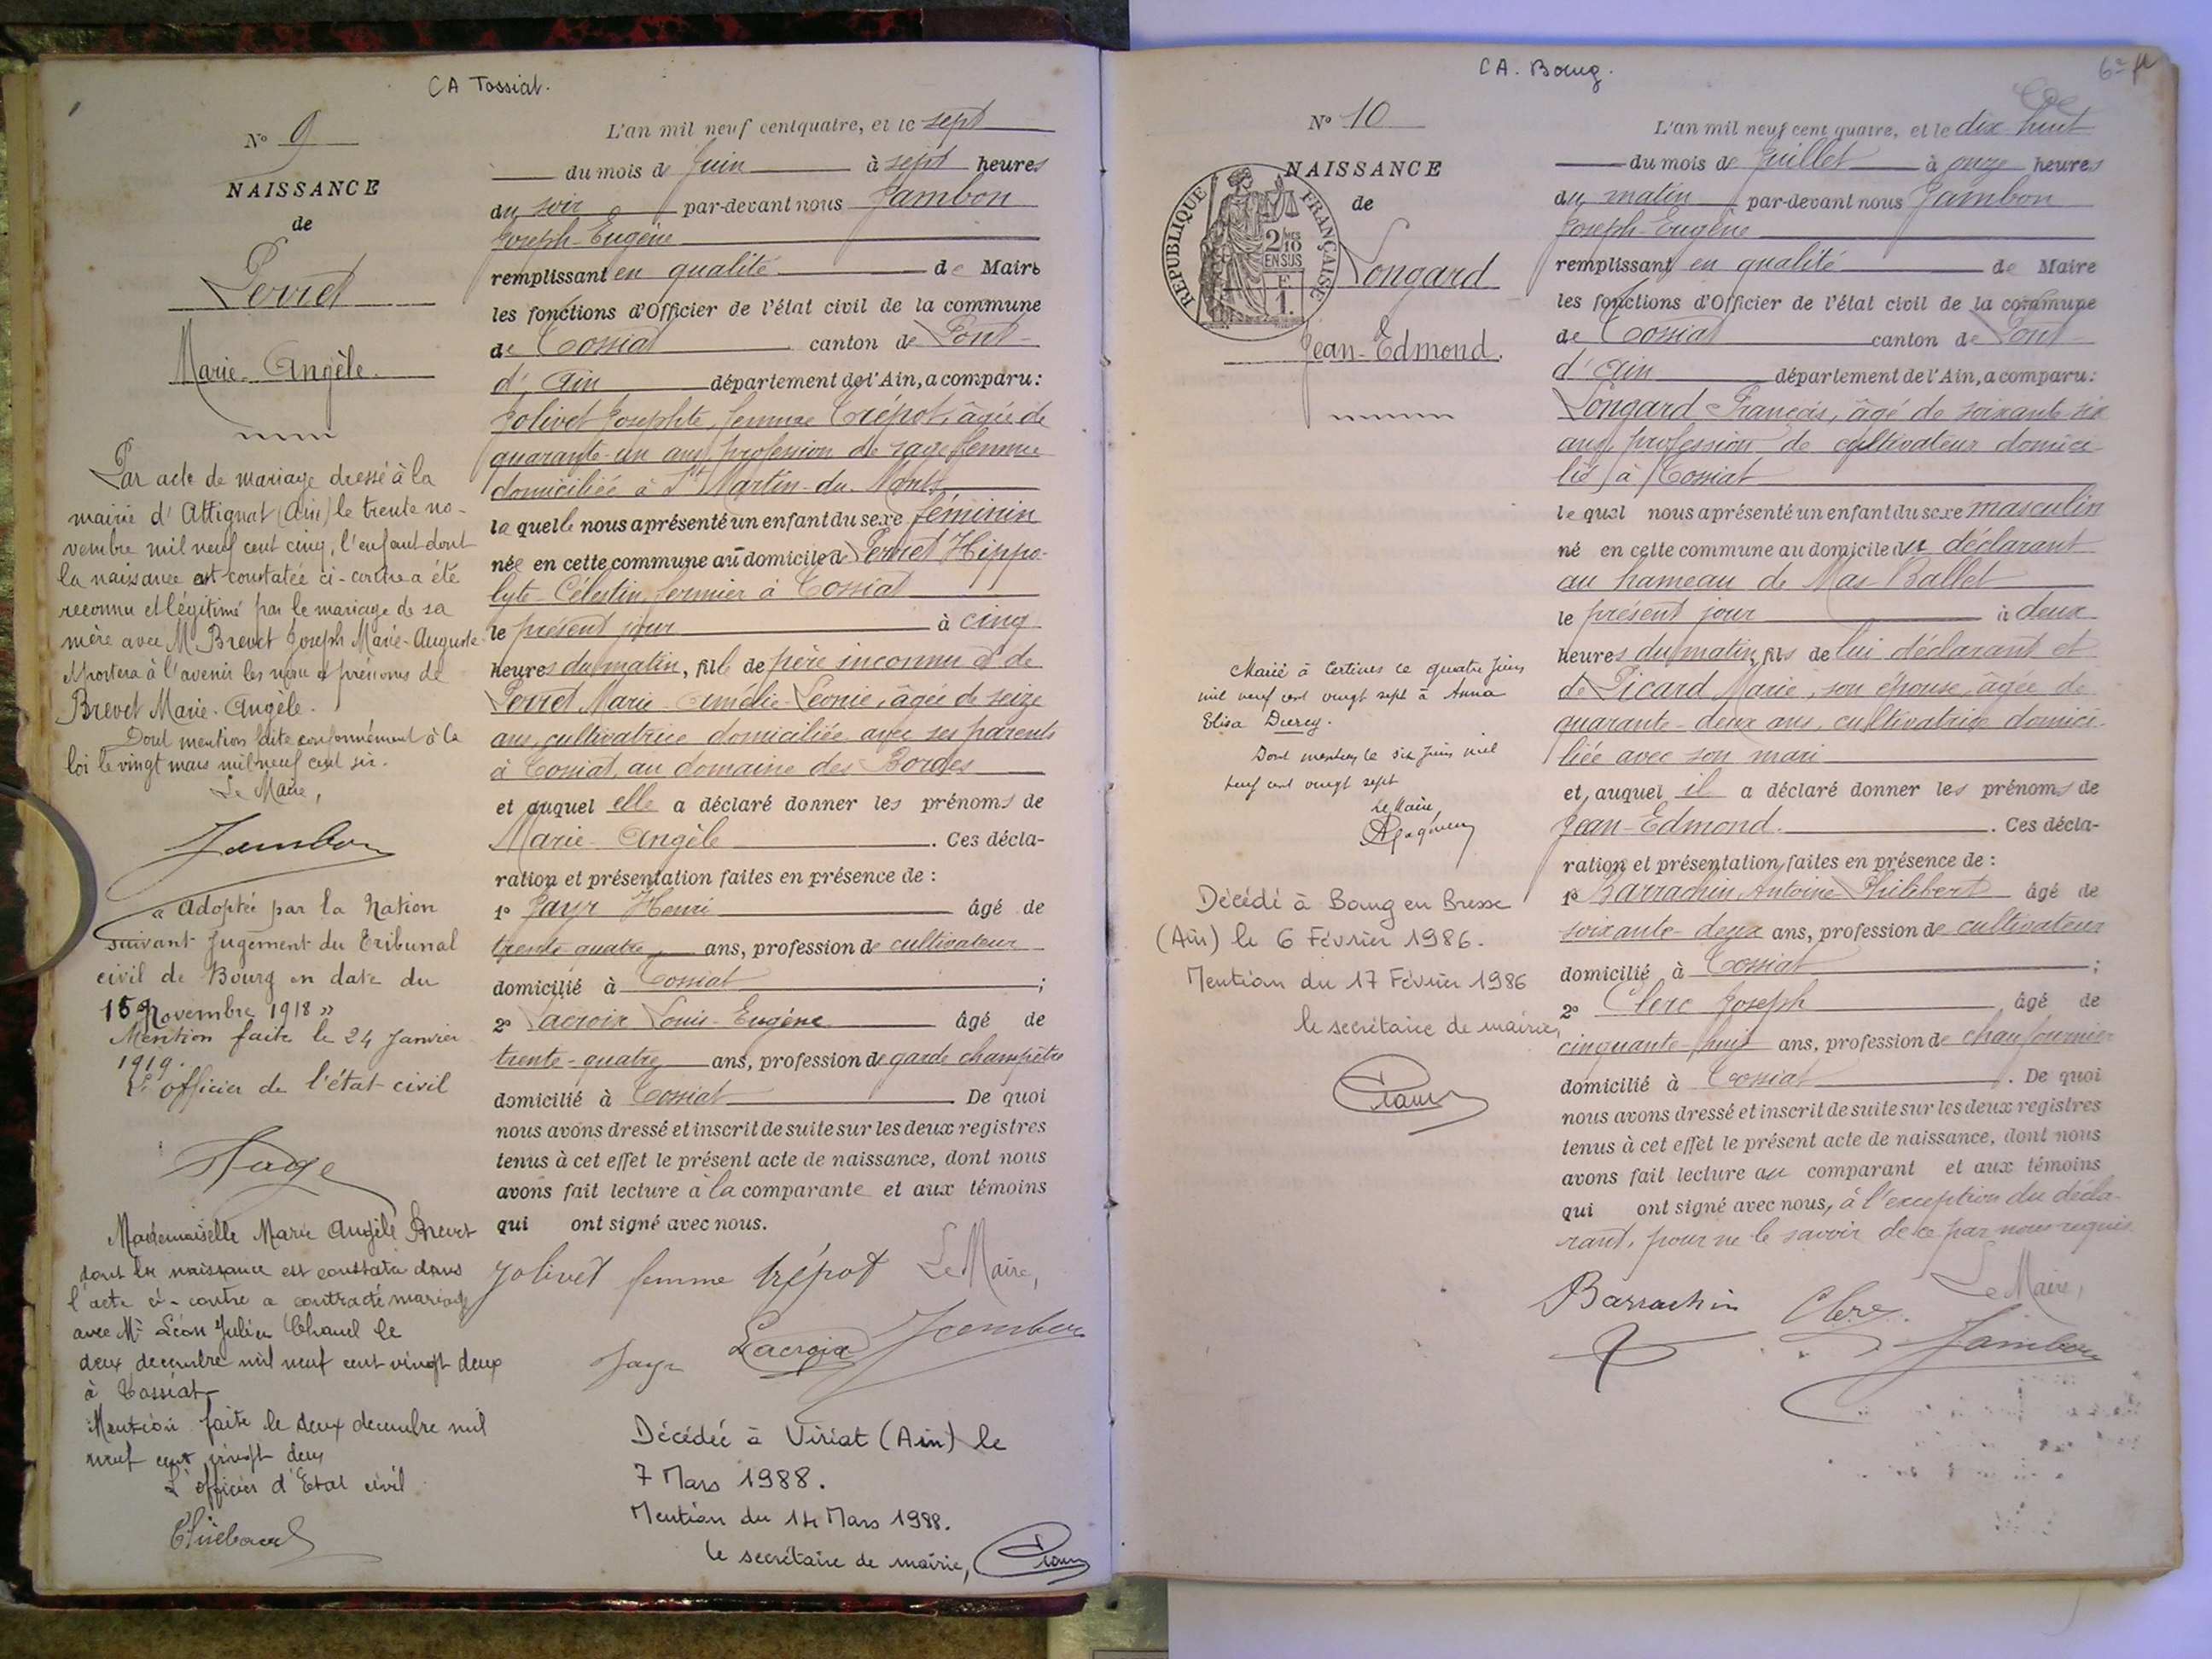 CA Tossiat.
N° 9
NAISSANCE
de
Perret
Marie-Angèle.
Par acte de mariage dressé à la
mairie d'Attignat (Ain) le trente no-
vembre mil neuf cent cinq, l'enfant dont
la naissance est constatée ci-contre a été
reconnu et légitimé par le mariage de sa
mère avec M. Brevet Joseph Marie-Auguste
et portera à l'avenir les nom et prénoms de
Brevet Marie-Angèle.
Dont mention faite conformément à la
loi le vingt mars mil neuf cent six.
Le Maire,
Jambon
"Adoptée par la Nation
suivant jugement du Tribunal
civil de Bourg en date du
15 Novembre 1918"
Mention faite le 24 Janvier
1919.
L'officier de l'état civil
Mademoiselle Marie Angèle Brevet
dont la naissance est constatée dans
l'acte ci-contre a contracté mariage
avec Mr Léon Julien Chanel le
deux decembre mil neuf cent vingt deux
à Tossiat
Mention faite le deux decembre mil
neuf cent vingt deux
L'officier d'Etat civil
L'an mil neuf cent quatre, et le sept
du mois de Juin à sept heures
du soir par-devant nous Jambon
Joseph-Eugène
remplissant en qualité de Maire
les fonctions d'Officier de l'état civil de la commune
de Tossiat canton de Pont-
d'Ain département de l'Ain, a comparu:
Jolivet Josephte, femme Trépot, âgée de
quarante-un ans, profession de sage femme
domiciliée à St Martin-du-Mont
la quelle nous a présenté un enfant du sexe féminin
née en cette commune au domicile de Perret Hippo-
lyte-Célestin, fermier à Tossiat
le présent jour à cinq
heures du matin, fille de père inconnu et de
Perret Marie-Amélie-Léonie, âgée de seize
ans, cultivatrice domiciliée avec ses parents
à Tossiat, au domaine des Bordes
et auquel elle a déclaré donner les prénoms de
Marie-Angèle. Ces décla-
ration et présentation faites en présence de :
1° Jayr Henri âgé de
trente quatre ans, profession de cultivateur
domicilié à Tossiat ;
2° Lacroix Louis-Eugène âgé de
trente-quatre ans, profession de garde champêtre
domicilié à Tossiat. De quoi
nous avons dressé et inscrit de suite sur les deux registres
tenus à cet effet le présent acte de naissance, dont nous
avons fait lecture à la comparante et aux témoins
qui ont signé avec nous.
Jolivet femme trépot Le Maire,
Jayr Lacroix Jambon
Décédée à Viriat (Ain) le
7 Mars 1988.
Mention du 14 Mars 1988.
le secrétaire de mairie,
CA. Bourg.
N° 10
NAISSANCE
de
RÉPUBLIQUE FRANÇAISE
2/10 EN SUS
F 1.
Longard
Jean-Edmond.
Marié à Certines le quatre Juin
mil neuf cent vingt sept à Anna
Elisa
Dont mention le six Juin mil
neuf cent vingt sept
Le Maire,
Décédé à Bourg en Bresse
(Ain) le 6 Février 1986.
Mention du 17 Février 1986
le secrétaire de mairie,
L'an mil neuf cent quatre, et le dix huit
du mois de Juillet à onze heures
du matin par-devant nous Jambon
Joseph-Eugène
remplissant en qualité de Maire
les fonctions d'Officier de l'état civil de la commune
de Tossiat canton de Pont-
d'Ain département de l'Ain, a comparu:
Longard François, âgé de soixante six
ans, profession de cultivateur domici
lié à Tossiat
le quel nous a présenté un enfant du sexe masculin
né en cette commune au domicile du déclarant
au hameau de Mas Ballet
le présent jour à deux
heures du matin, fils de lui déclarant et
de Picard Marie, son épouse, âgée de
quarante-deux ans, cultivatrice domici-
liée avec son mari
et auquel il a déclaré donner les prénoms de
Jean-Edmond. Ces décla-
ration et présentation faites en présence de :
1° Barrachin Antoine-Philibert âgé de
soixante-deux ans, profession de cultivateur
domicilié à Tossiat ;
2° Clerc Joseph âgé de
cinquante-huit ans, profession de chaufournier
domicilié à Tossiat. De quoi
nous avons dressé et inscrit de suite sur les deux registres
tenus à cet effet le présent acte de naissance, dont nous
avons fait lecture au comparant et aux témoins
qui ont signé avec nous, à l'exception du décla-
rant, pour ne le savoir de ce par nous requis
Le Maire,
Barrachin Clerc Jambon